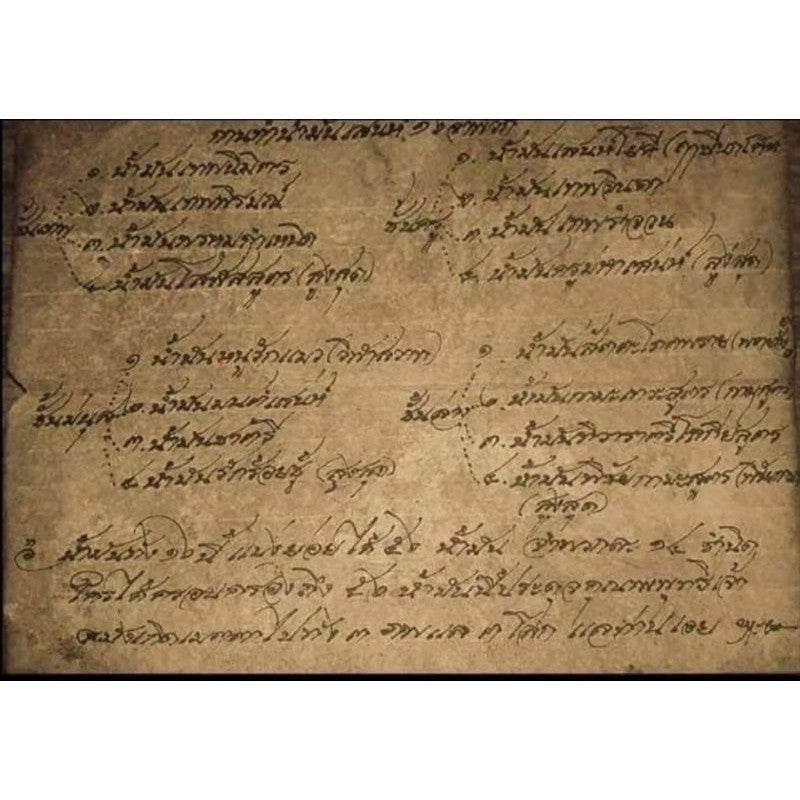 การทำน้ำมันเสน่ห์ ๑๖ จำพวก
ชั้นเทพ
๑. น้ำมันเทพนิมิตร
๒. น้ำมันเทพพิรมณ์
๓. น้ำมันพรหมกำเหนิด
๔. น้ำมันโสฬสสูตร (สูงสุด)
ชั้นครู
๑. น้ำมันเสน่ห์โยคี (ฤๅษี
๒. น้ำมันเทพจินดา
๓. น้ำมันเทพรำจวน
๔. น้ำมันครูมหาเสน่ห์ (สูงสุด)
ชั้นมนุษ
๑ น้ำมันหนูรักแมว (วิฬาสวาท)
๒. น้ำมันมนต์เสน่ห์
๓. น้ำมันชาตรี
๔. น้ำมันรักร้อยชู้ (สูงสุด)
๑. น้ำมัน
๒. น้ำมันกามะ
๓. น้ำมัน
๔. น้ำมันพิชัยกามะสูตร
(สูงสุด)
น้ำมันทั้ง ๑๖ นี้ แบ่งย่อยได้ ๕๖ น้ำมัน จำพวกละ ๑๔ ชำนิด
ใครได้ครอบครองถึง ๕๖ น้ำมันนี้ประดุจคุณพพุทธิเจ้า
เมตตาไปทั้ง ๓ ภพแล ๓ โลก แลท่านเอย